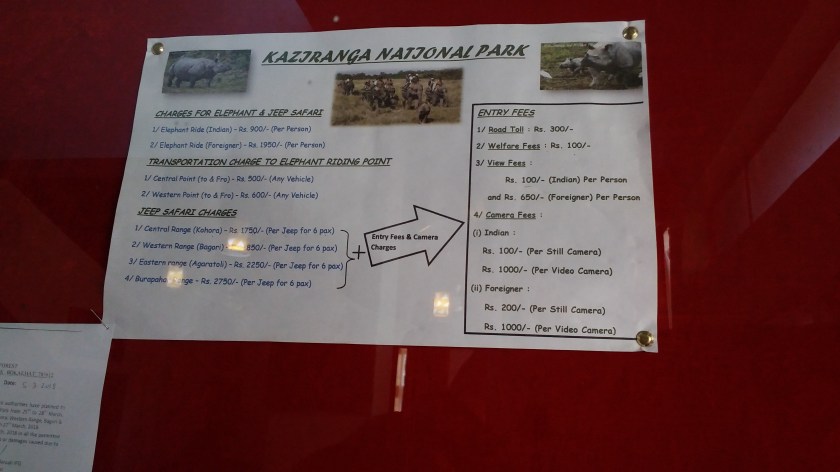 KAZIRANGA NATIONAL PARK
CHARGES FOR ELEPHANT & JEEP SAFARI
1/ Elephant Ride (Indian) - Rs. 900/- (Per Person)
2/ Elephant Ride (Foreigner) - Rs. 1950/- (Per Person)
TRANSPORTATION CHARGE TO ELEPHANT RIDING POINT
1/ Central Point (to & Fro) - Rs. 500/- (Any Vehicle)
2/ Western Point (to & Fro) - Rs. 600/- (Any Vehicle)
JEEP SAFARI CHARGES
1/ Central Range (Kohora) - Rs. 1750/- (Per Jeep for 6 pax)
2/ Western Range (Bagori) 850/- (Per Jeep for 6 pax)
3/ Eastern range (Agaratoli) - Rs. 2250/- (Per Jeep for 6 pax)
4/ - Rs. 2750/- (Per Jeep for 6 pax)
+
Entry Fees & Camera
Charges
ENTRY FEES
1/ Road Toll : Rs. 300/-
2/ Welfare Fees : Rs. 100/-
3/ View Fees :
Rs. 100/- (Indian) Per Person
and Rs. 650/- (Foreigner) Per Person
4/ Camera Fees :
(i) Indian :
Rs. 100/- (Per Still Camera)
Rs. 1000/- (Per Video Camera)
(ii) Foreigner :
Rs. 200/- (Per Still Camera)
Rs. 1000/- (Per Video Camera)